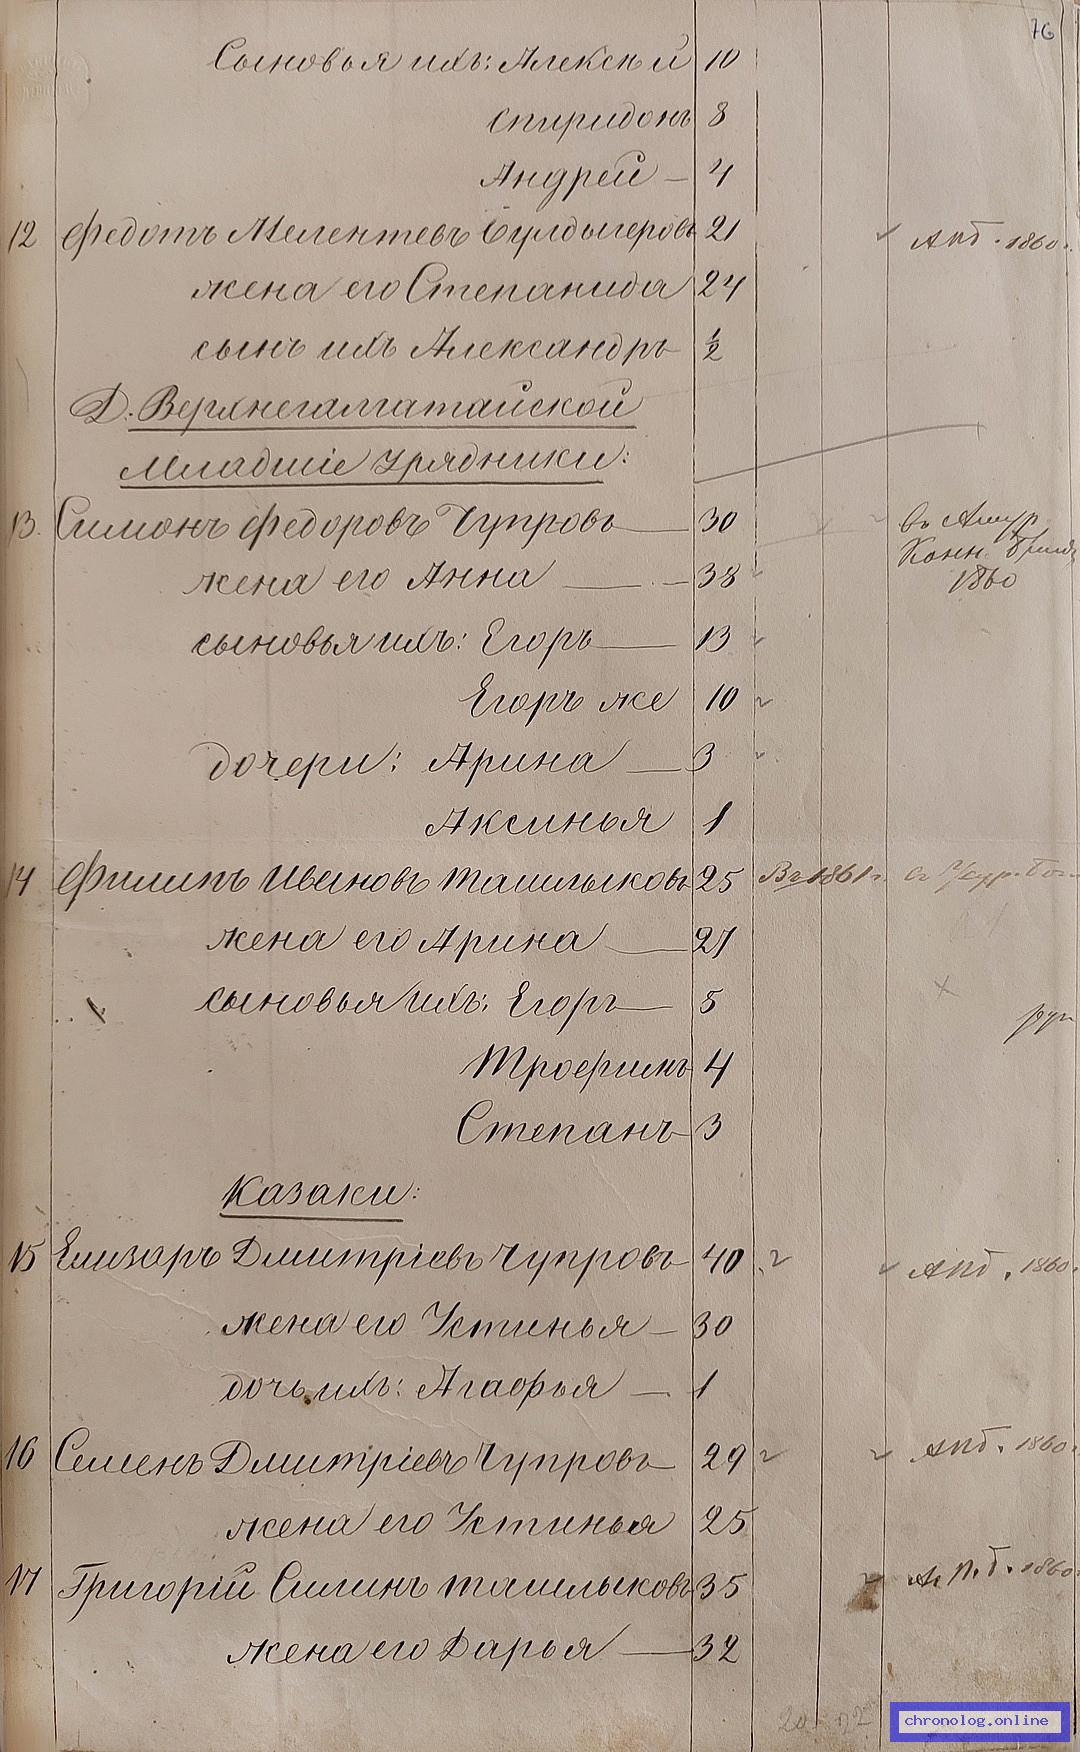 76
Сыновья ихъ: Алексѣй 10
Спиридонъ 8
Андрей — 4
12 Федотъ Мелентьевъ Булдыгеровъ 21 Апб. 1860 г.
жена его Степанида 24
сынъ ихъ Александръ 1/2
Д. Верхнегалгатайской
Младшіе Урядники:
13. Симонъ Федоровъ Чупровъ — 30 въ Амур.
Конн. Бриг.
жена его Анна — 38 1860
сыновья ихъ: Егоръ — 13
Егоръ же 10
дочери: Арина — 3
Аксинья 1
14 Филипъ Ивановъ Ташлыковъ 25 Въ 1861 г.
жена его Арина — 27
сыновья ихъ: Егоръ — 5
Трофимъ 4
Степанъ 3
Казаки:
15 Елизаръ Дмитріевъ Чупровъ 40 Апб. 1860.
жена его Устинья — 30
дочь ихъ: Агафья — 1
16 Семенъ Дмитріевъ Чупровъ — 29 Апб. 1860
жена его Устинья 25
17 Григорій Силинъ Ташлыковъ 35 А. п. б. 1860
жена его Дарья — 32
chronolog.online